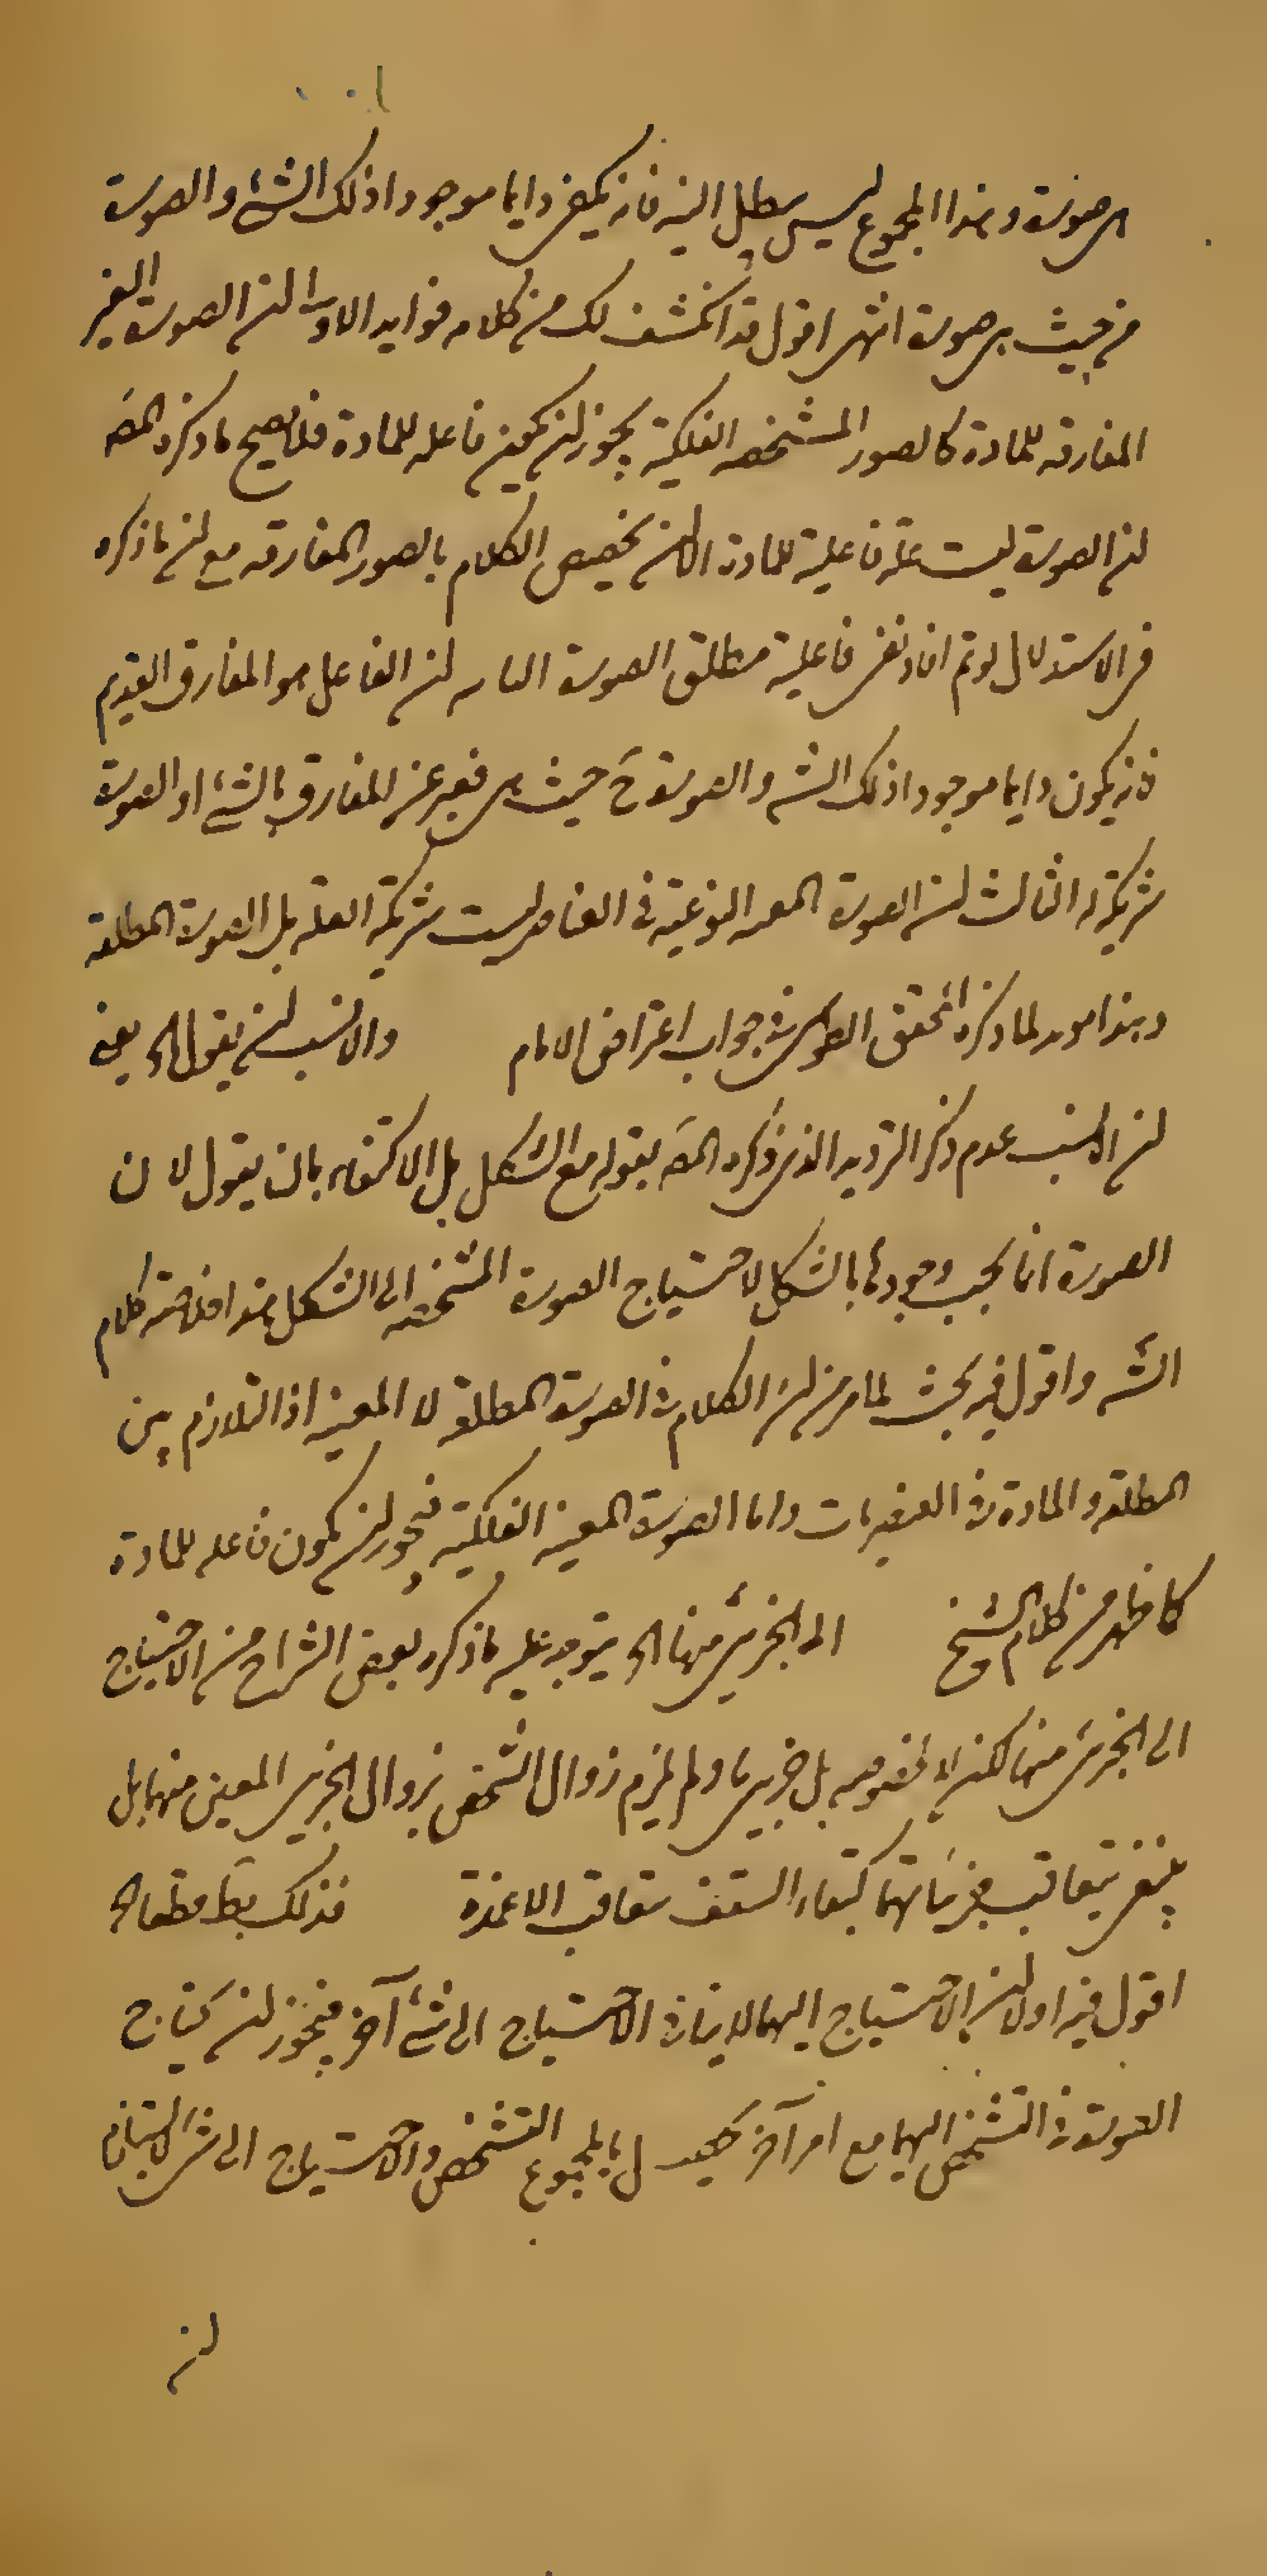 هى صورة وهذا المجموع ليس يبطل البتة فانه يكون دايما موجودا ذلك الشئ والصورة
من حيث هى صورة انتهى اقول قد انكشف لك من كلامه فوايد الاولى ان الصورة الغير
المفارقة للمادة كالصور المشخصه الفلكية يجوز ان يكون فاعله للمادة فلا يصح ما ذكره المصه
ان الصورة ليست علة فاعلية للمادة الا ان يخصص الكلام بالصور المفارقه مع ان ما ذكره
فى الاستدلال لو تم افاد نفى فاعلية مطلق الصورة الثانيه ان الفاعل هو المفارق القديم
فانه يكون دايما موجودا ذلك الشئ والصورة من حيث هى فعبر عن المفارق بالشئ او الصورة
شريكة له الثالث ان الصورة النوعية فى العناصر ليست شريكة العله بل الصورة المطلقه
وهذا مويد لما ذكره المحقق الطوسى فى جواب اعتراض الامام والانسب ان يقول الخ يعنى
ان الانسب عدم ذكر الترديد الذى ذكره المصه بقوله مع الشكل بل الاكتفاء بان يقول لان
الصورة انما يجب وجودها بالشكل لاحتياج الصورة المشخصه الى الشكل هذا خلاصة كلام
الشه واقول فيه بحث لما مر من ان الكلام فى الصورة المطلقه لا المعينه اذ التلازم بين
المطلقه والمادة فى العنصريات واما الصورة المعينه الفلكية فيجوز ان يكون فاعله للمادة
كما ظهر من كلام الشيخ الى الجزئى منها الخ يتوجه عليه ما ذكره بعض الشراح من الاحتياج
الى الجزئى منها لكن لا لخصوصه بل جزئى ما ولم يلزم زوال الشخص بزوال الجزئى المعين منها بل
يبقى بتعاقب جزئياتها كبقاء السقف بتعاقب الاعمدة فذلك بط قطعا الخ
اقول فيه اولا ان الاحتياج اليها لا ينافى الاحتياج الى شئ آخر فيجوز ان يحتاج
الصورة فى التشخص اليها مع امر آخر بالمجموع التشخص والاحتياج الى شئ لا يستلزم
ان